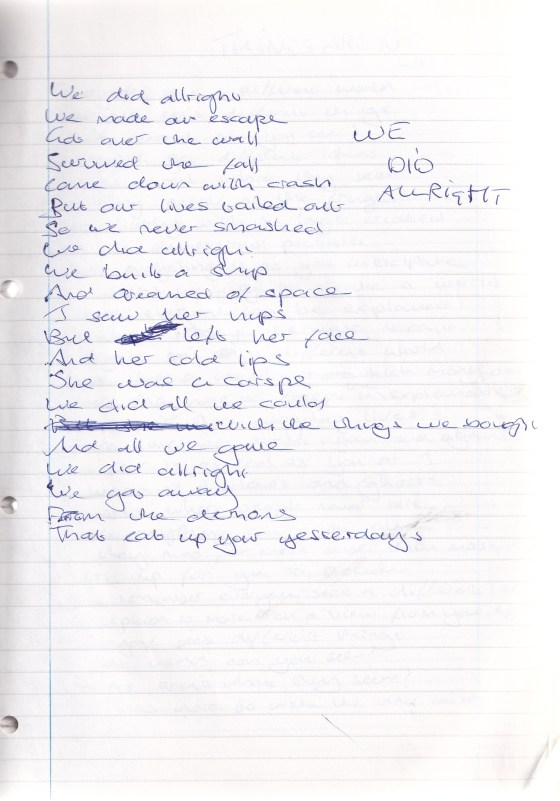 We did allright
We made our escape
Got over the wall
Survived the fall
Came down with crash
But our lives bailed out
So we never smashed
We did allright
We built a ship
And dreamed of space
I saw her hips
But left her face
And her cold lips
She was a corspe
We did all we could
With the things we bought
And all we gave
We did allright
We got away
From the demons
That eat up your yesterdays
WE
DID
ALLRIGHT